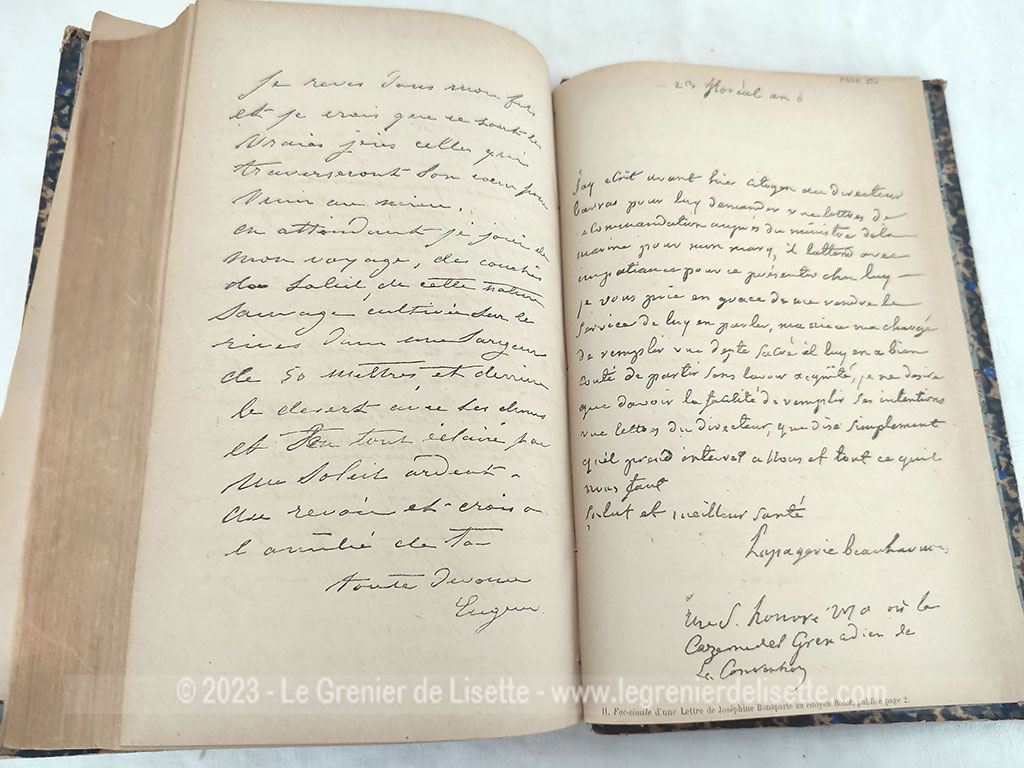 Je reves dans mon
et je crois que ce sont les
vraies joies celles qui
traverseront son coeur pour
venir au mien.
en attendant je jouis de
mon voyage, des couchés
de Soleil, de cette nature
Sauvage cultivée sur le
rives dans une largeur
de 50 mettres, et derriere
le desert avec ses dunes
et tout éclairé par
un Soleil ardent.
Au revoir et crois a
l'amitié de ta
toute devouée
Eugenie
PAGE 275
floréal an 6
J'ay ecrit avant hier citoyen au directeur
barras pour luy demander une lettres de
recommandation aupres du ministre de la
marine pour mon mary, il lattend avec
impatiance pour ce présenter cher luy —
je vous prie en grace de me rendre le
service de luy en parler, ma niece ma chargé
de remplir une depte sacré il luy en a bien
couté de partir sans lavoir aquité, je ne desire
que davoir la facilité de remplir ses intentions
une lettres du directeur, que dise simplement
quil prend interret a nous et tout ce quil
nous faut
Salut et meilleur santé
Lapagerie Beauharnais
rue S. honoré no où la
Cazerne des Grenadier de
La Convention
II. Fac-simile d'une Lettre de Joséphine Bonaparte au citoyen Botot, publiée page 2.
© 2023 - Le Grenier de Lisette - www.legrenierdelisette.com